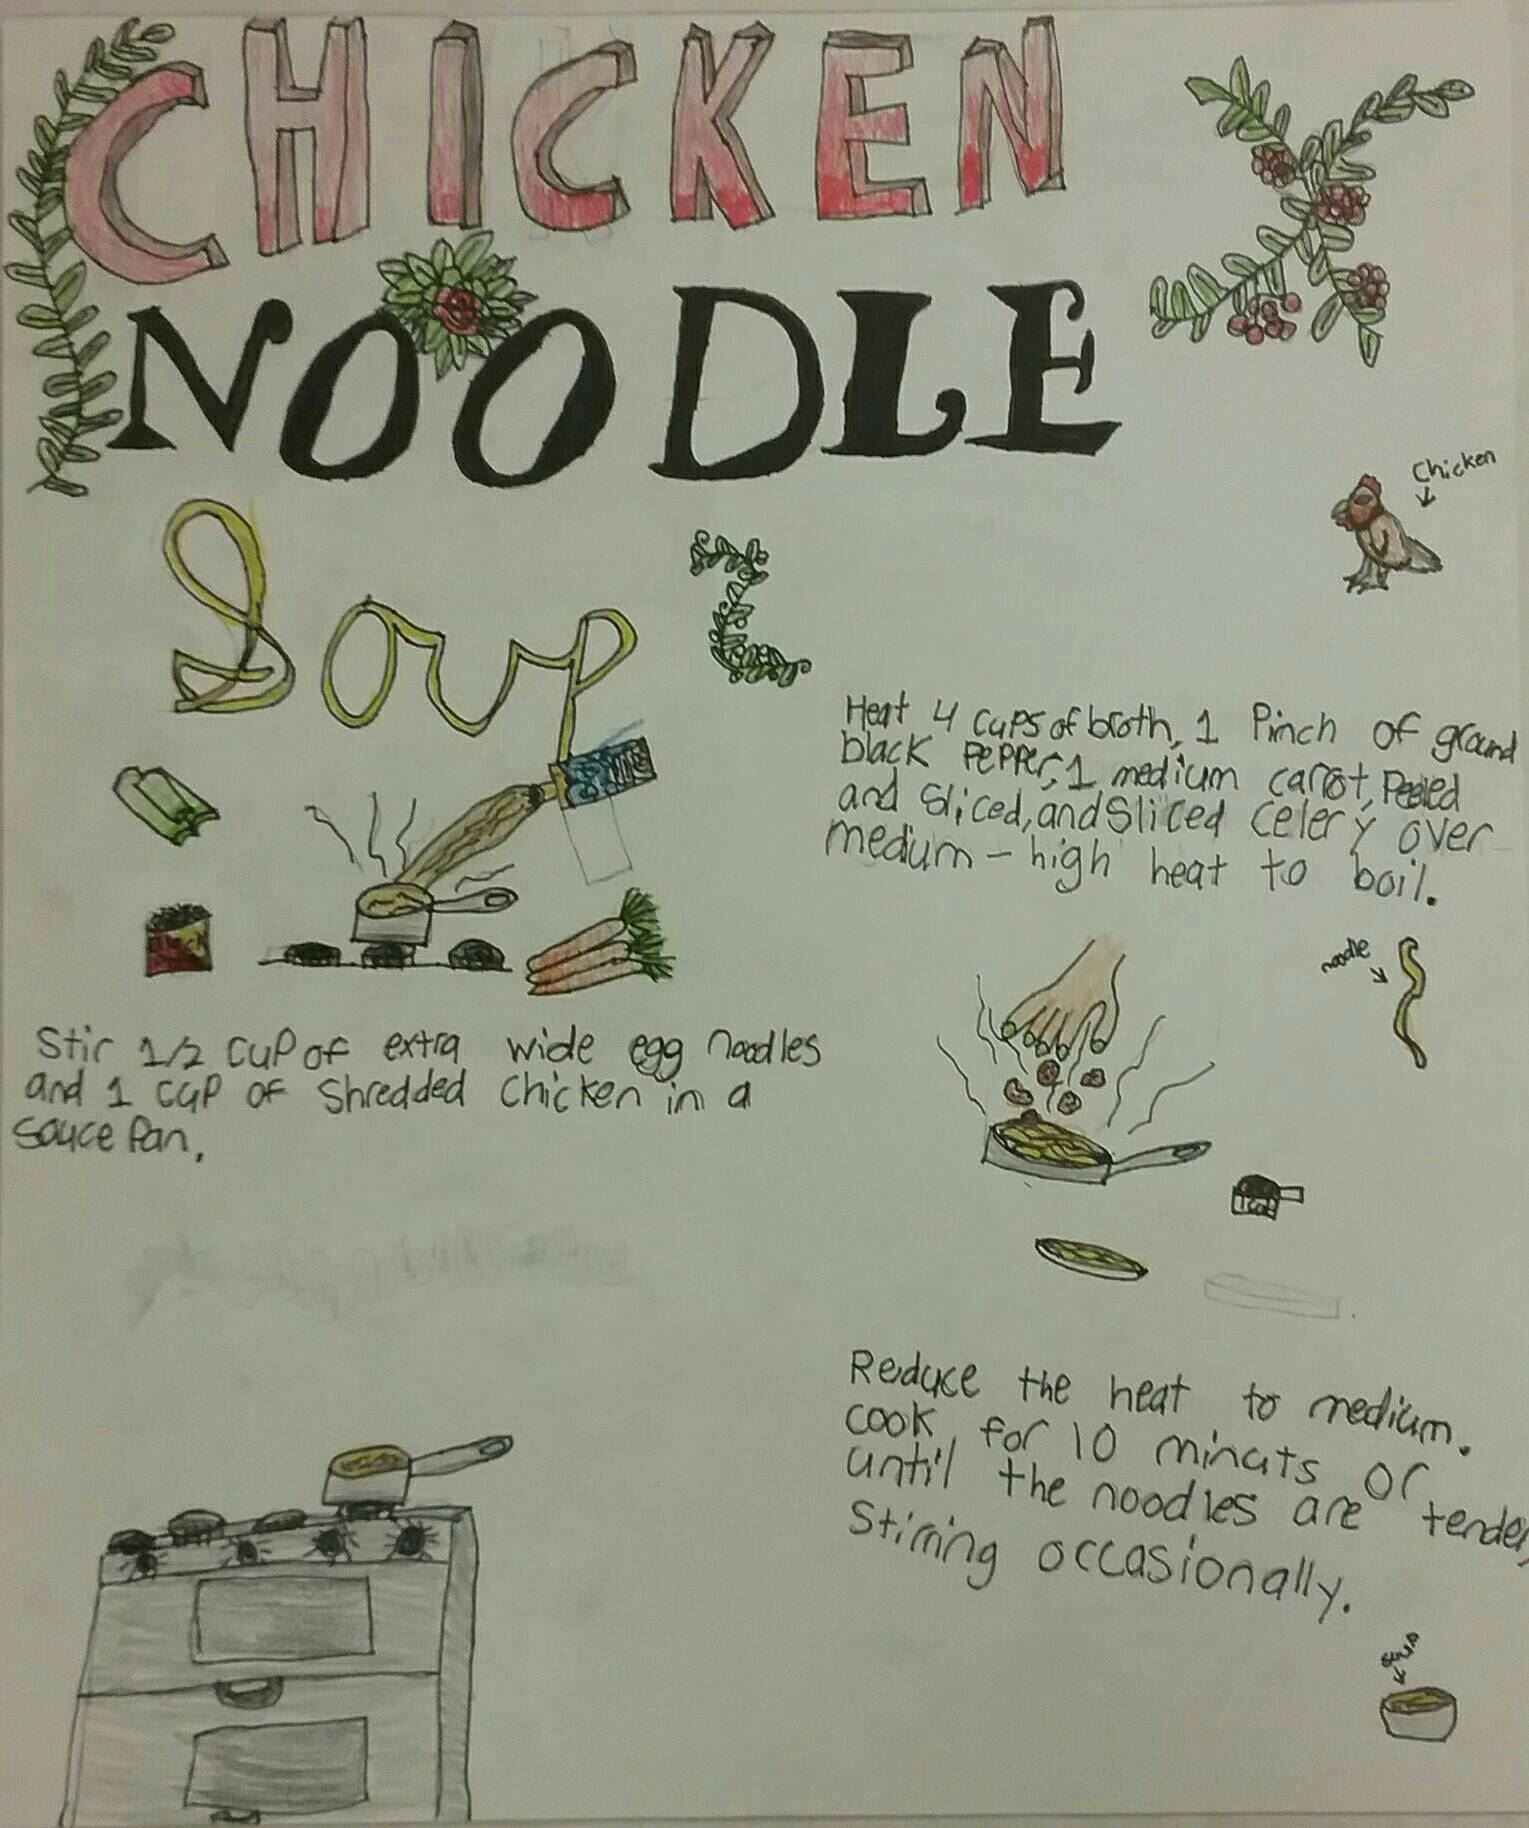 CHICKEN
NOODLE
Soup
Chicken
Heat 4 cups of broth, 1 Pinch of ground
black Pepper, 1 medium carrot, Peeled
and Sliced, and Sliced celery over
medium - high heat to boil.
Black
noodle
Stir 1/2 cup of extra wide egg noodles
and 1 cup of Shredded Chicken in a
Sauce Pan.
Reduce the heat to medium.
cook for 10 minuts or
until the noodles are tender,
Stirring occasionally.
soup